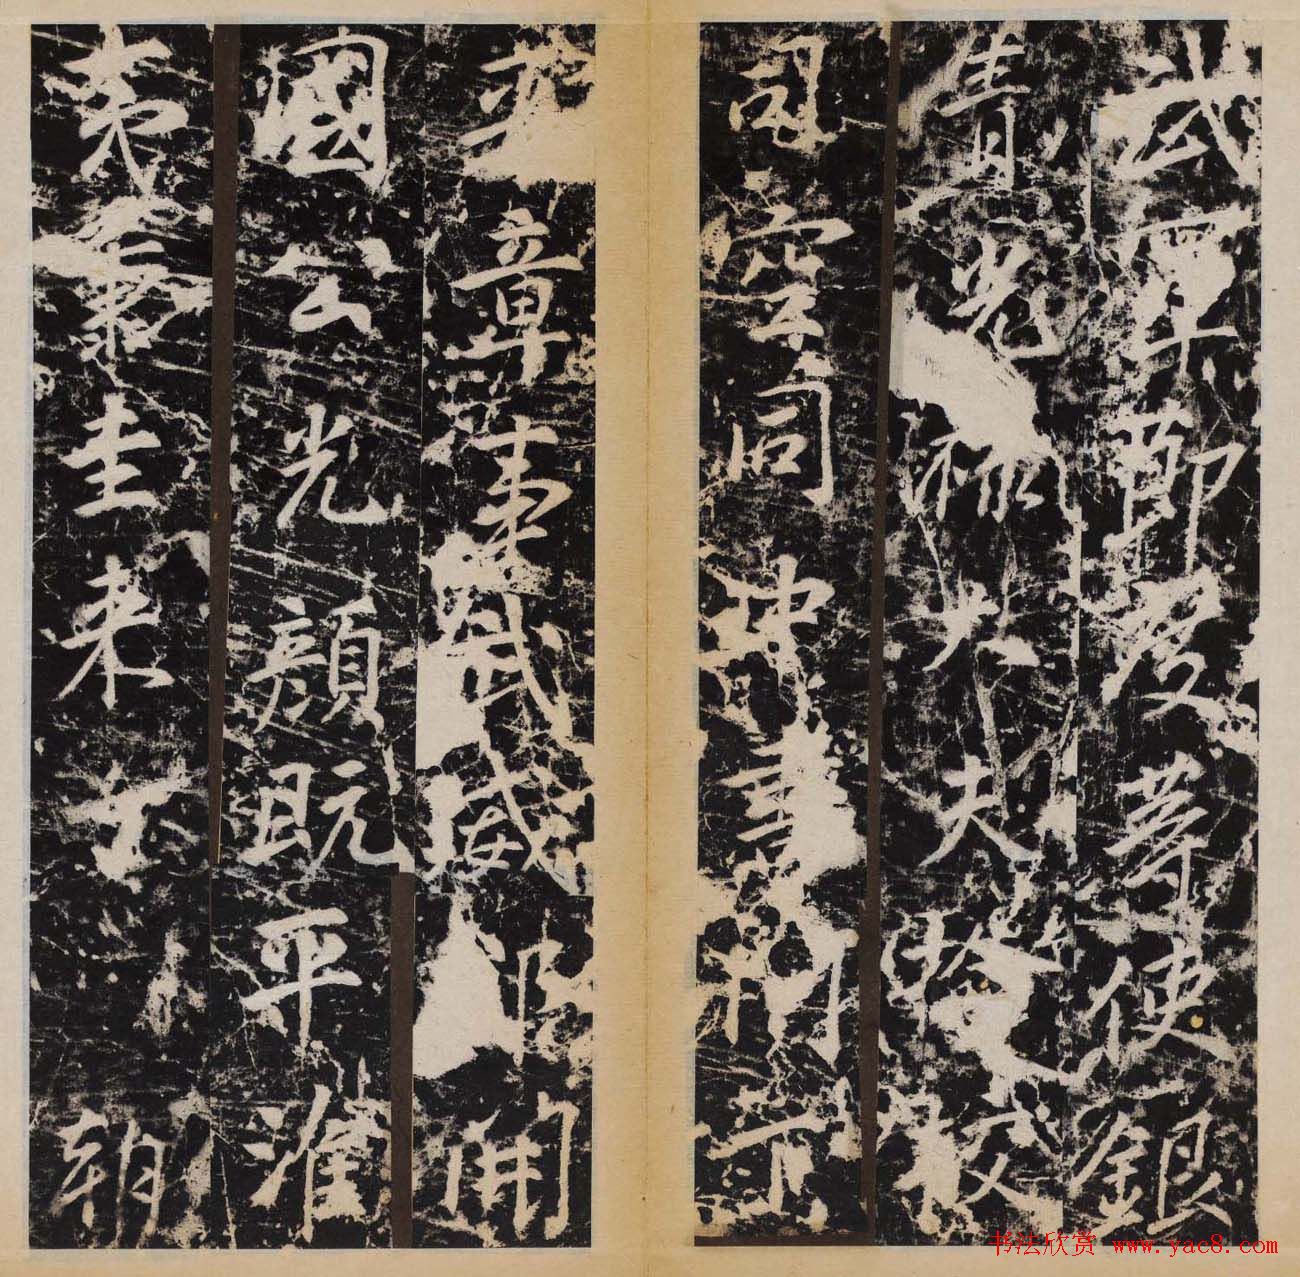 武軍節度等使銀
青光祿大夫檢校
司空同中書門下
平章事武威郡開
國公光顏既平淮
夷秉圭来朝
书法欣赏 www.yac8.com